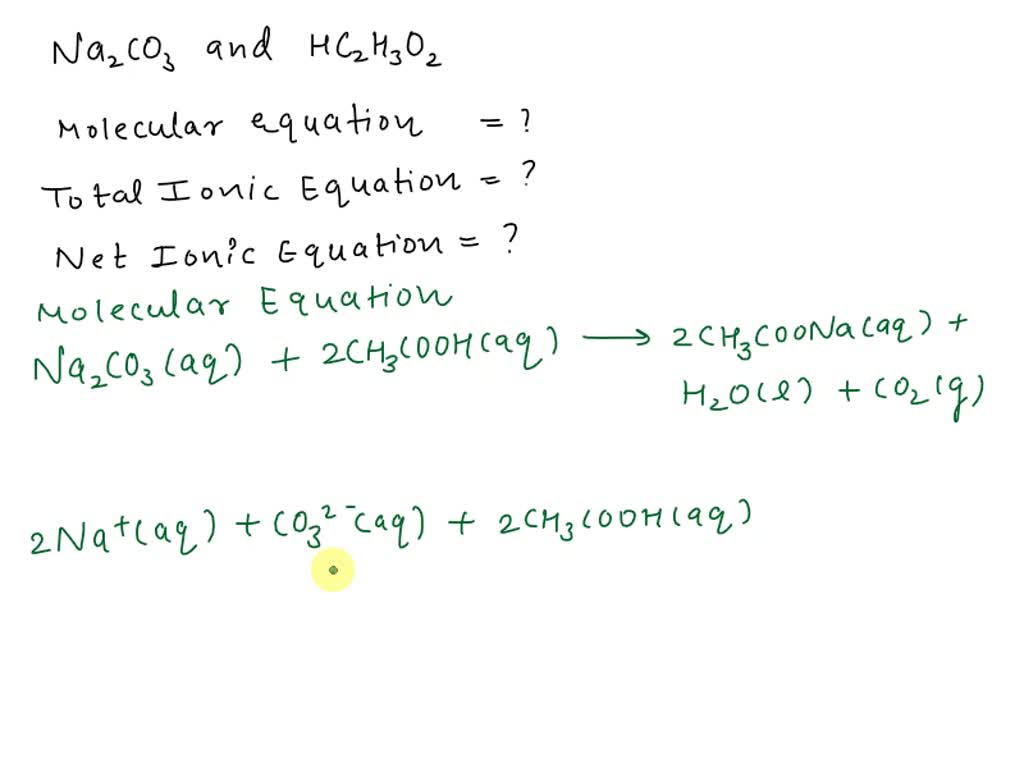 Na₂CO₃ and HC₂H₃O₂
Molecular equation = ?
Total Ionic Equation = ?
Net Ionic Equation = ?
Molecular Equation
Na₂CO₃(aq) + 2CH₃COOH(aq) ⟶ 2CH₃COONa(aq) +
H₂O(l) + CO₂(g)
2Na⁺(aq) + CO₃²⁻(aq) + 2CH₃COOH(aq)